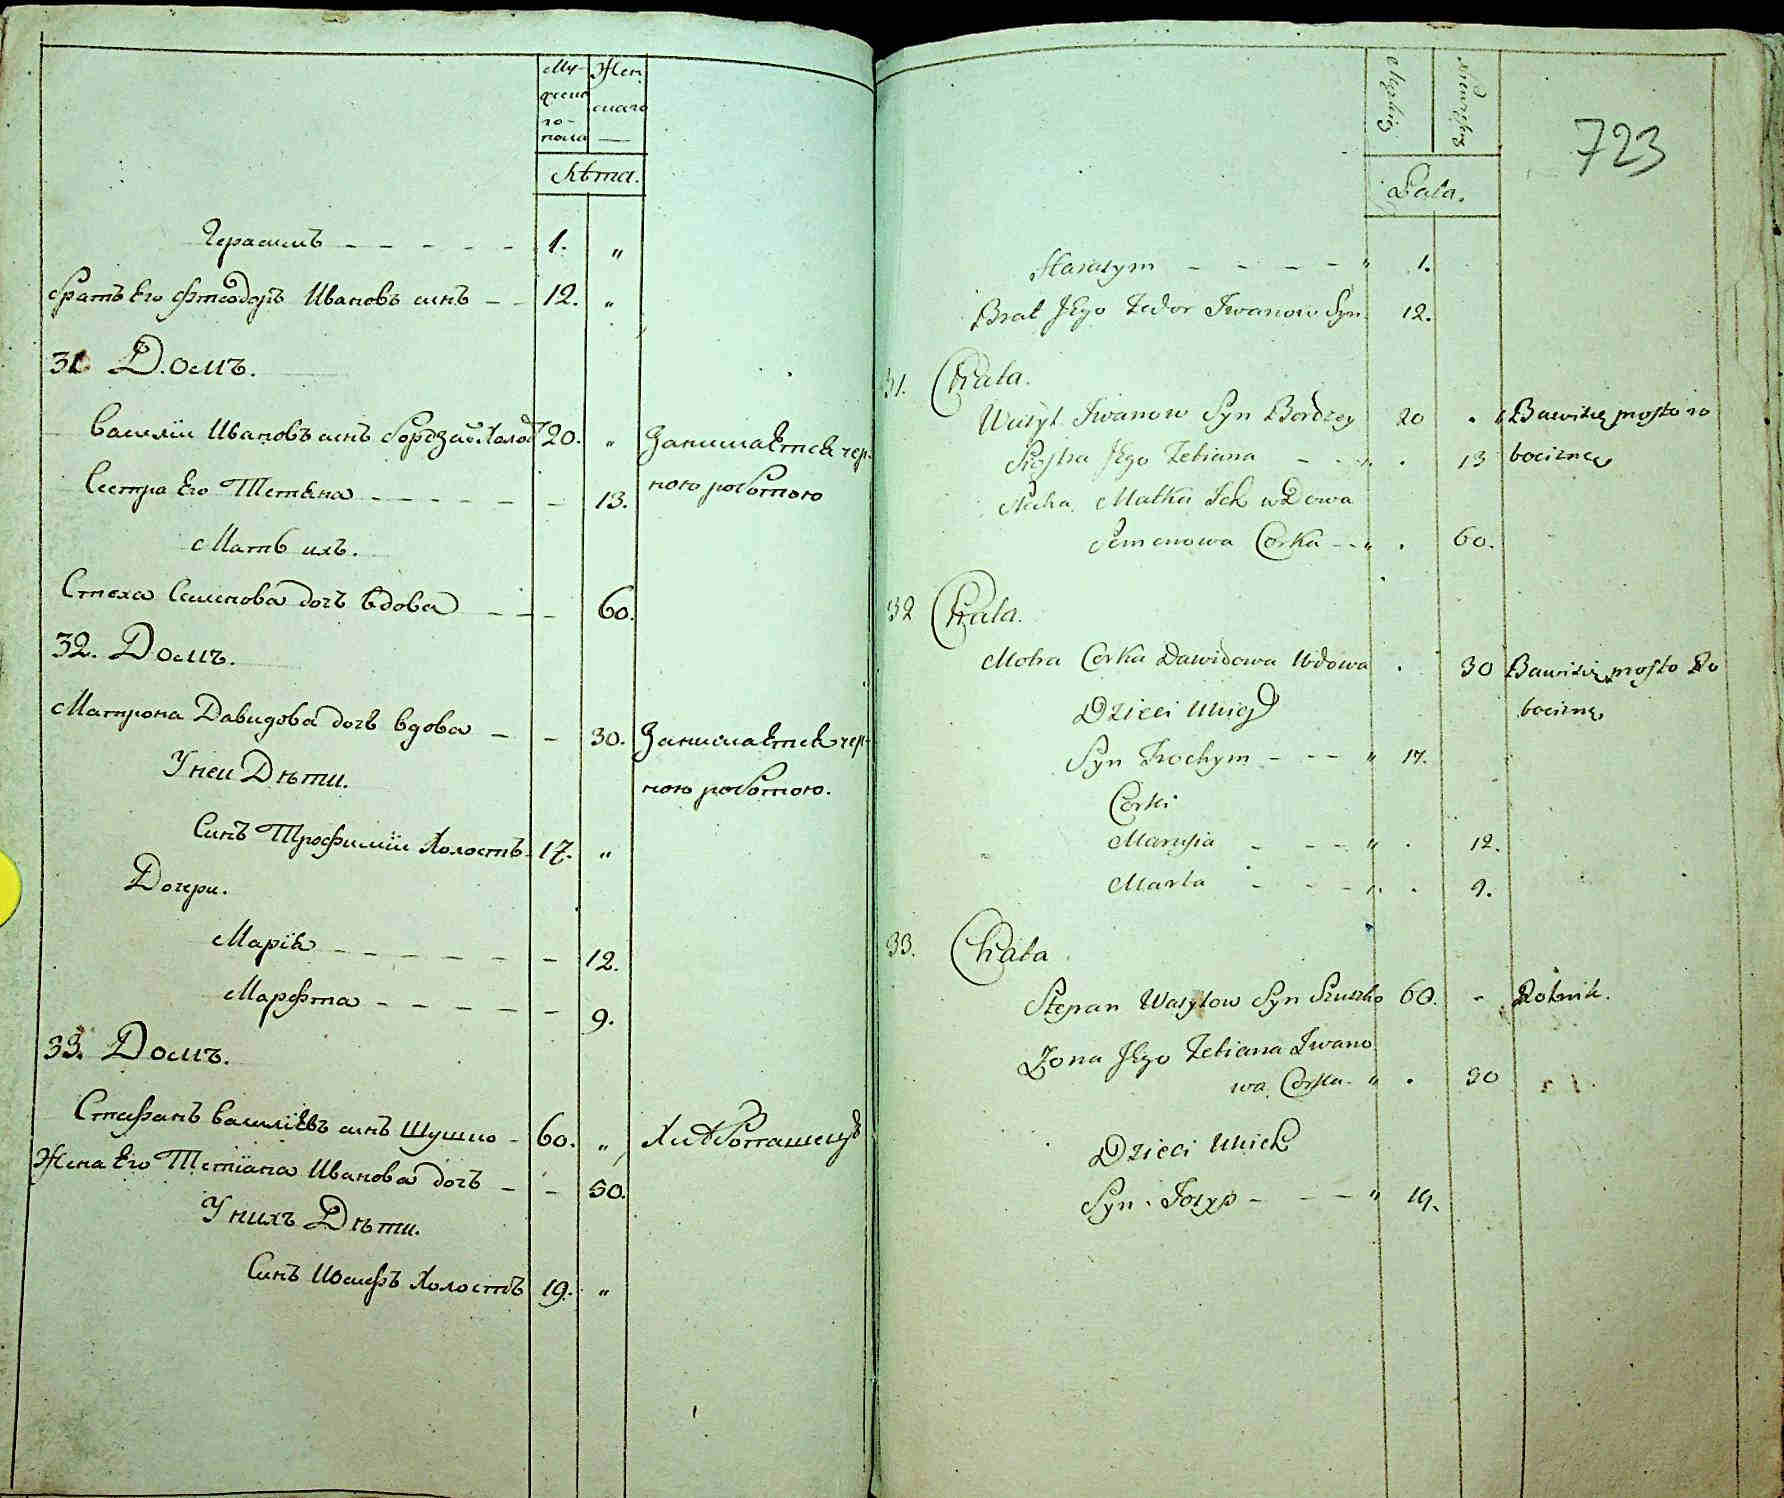 Мужеска го- пола
Женскаго
Лѣта.
Герасимъ - - - - - 1. "
Братъ Его Фтеодоръ Ивановъ синъ - - 12. "
31 Домъ.
Василiи Ивановъ синъ Бордзаи. Холос 20. " Занимаетея чер-
Сестра Его Тетяна - - - - - - 13. ною роботою
Мать ихъ.
Стеха Семенова дочъ вдова - - - 60.
32. Домъ.
Матрона Давидова дочъ вдова - - 30. Занимаетея чер-
У неи Дѣти. ною роботою.
Синъ Трофимiи Холостъ 17. "
Дочери.
Марiя - - - - - - - 12.
Марфта - - - - - - 9.
33. Домъ.
Стефанъ Василiевъ синъ Шушко - 60. " Хлѣбопашецъ
Жена Его Тетiана Иванова дочъ - - 50.
У нихъ Дѣти.
Синъ Иосифъ Холостъ 19. "
Męskiey
Lata.
723
Harasym - - - - " 1.
Brat Jego Fedor Iwanow Syn 12.
31. Chata.
Wasyl Iwanow Syn Bordzey 20 . Bawi się prosto ro
Siostra Jego Tetiana - - " . 13 bocizną
Matka Ich wdowa
Semenowa Corka - - " . 60.
32 Chata.
Motra Corka Dawidowa Wdowa . 30 Bawi się prosto Ro
Dzieci Uniey bocizną
Syn Trochym - - - " 17.
Corki
Marysia - - - " . 12.
Marta - - - " . 9.
33. Chata
Stepan Wasylow Syn Szuszko 60. - Rolnik.
Zona Jego Tetiana Iwano
wa Corka - " . 50
Dzieci Unich
Syn Iozyp - - - " 19.